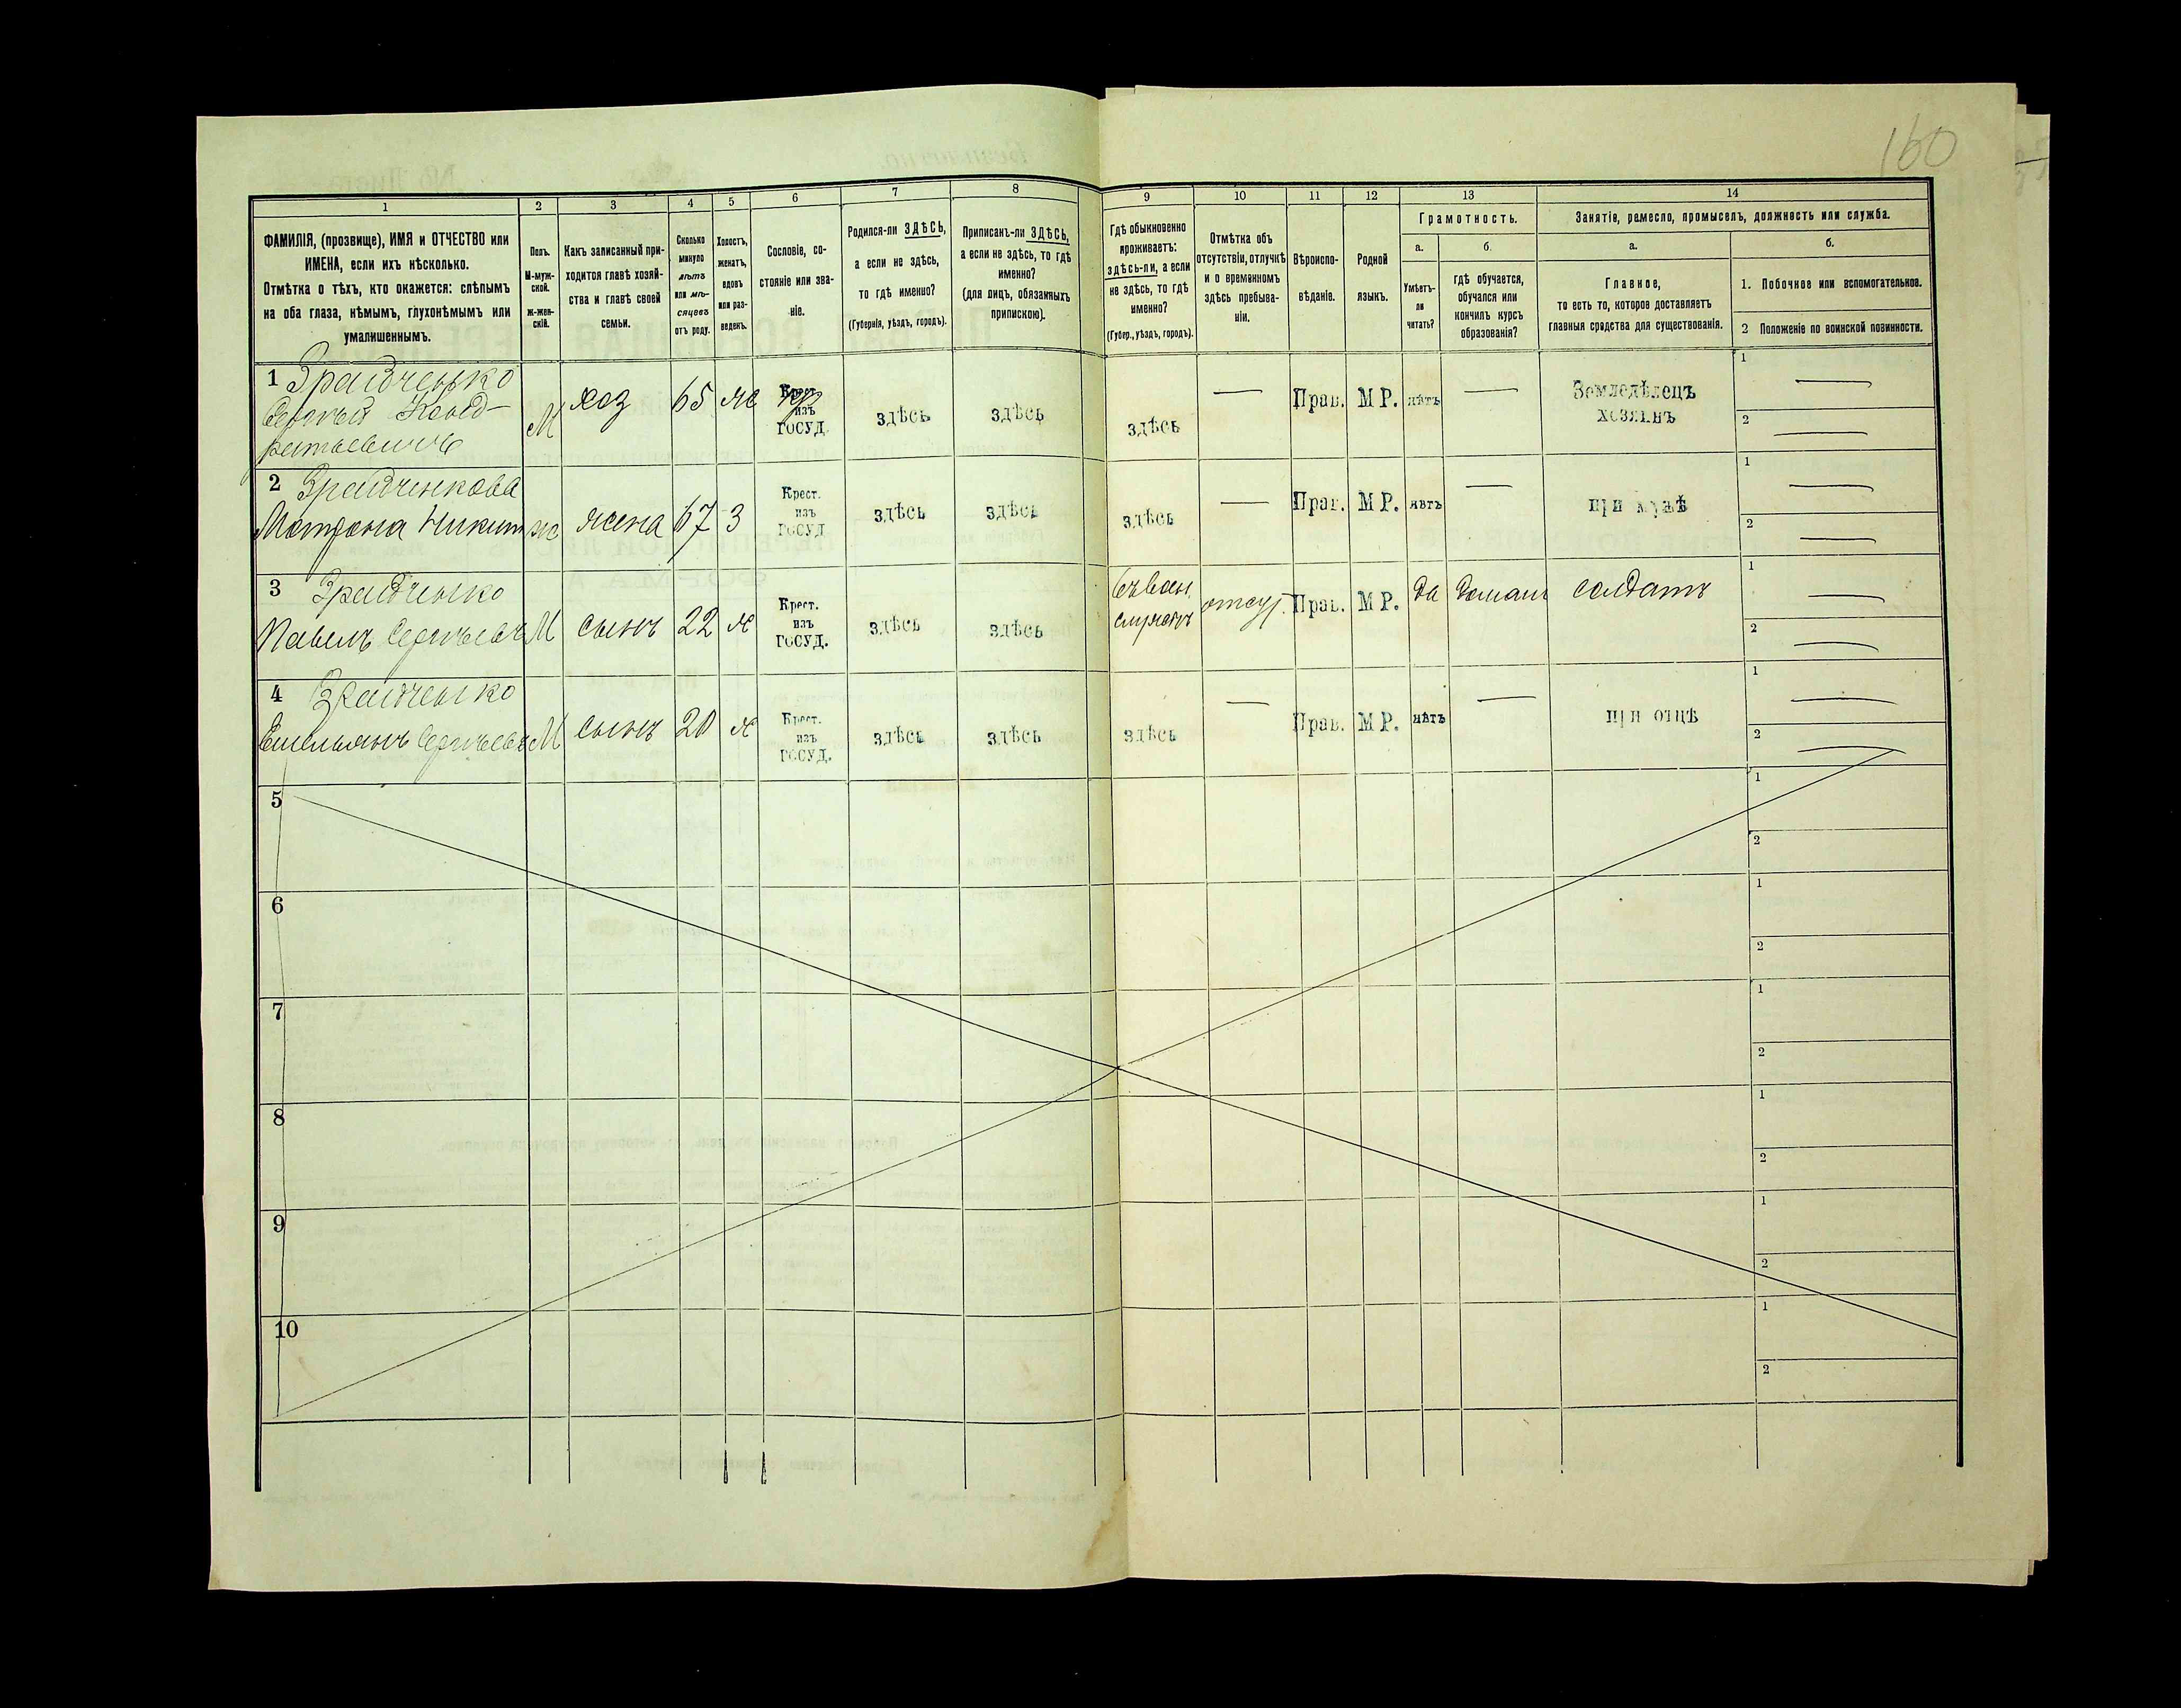 160
1
2
3
4
5
6
7
8
9
10
11
12
13
14
ФАМИЛІЯ, (прозвище), ИМЯ и ОТЧЕСТВО или
ИМЕНА, если ихъ нѣсколько.
Отмѣтка о тѣхъ, кто окажется: слѣпымъ
на оба глаза, нѣмымъ, глухонѣмымъ или
умалишеннымъ.
Полъ.
М-муж-
ской.
Ж-жен-
скій.
Какъ записанный при-
ходится главѣ хозяй-
ства и главѣ своей
семьи.
Сколько
минуло
лѣтъ
или мѣ-
сяцевъ
отъ роду.
Холостъ,
женатъ,
вдовъ
или раз-
веденъ.
Сословіе, со-
стояніе или зва-
ніе.
Родился-ли ЗДѢСЬ,
а если не здѣсь,
то гдѣ именно?
(Губернія, уѣздъ, городъ).
Приписанъ-ли ЗДѢСЬ,
а если не здѣсь, то гдѣ
именно?
(для лицъ, обязанныхъ
припискою).
Гдѣ обыкновенно
проживаетъ:
здѣсь-ли, а если
не здѣсь, то гдѣ
именно?
(Губер., уѣздъ, городъ).
Отмѣтка объ
отсутствіи, отлучкѣ
и о временномъ
здѣсь пребыва-
ніи.
Вѣроиспо-
вѣданіе.
Родной
языкъ.
Грамотность.
а.
Умѣетъ-
ли
читать?
б.
гдѣ обучается,
обучался или
кончилъ курсъ
образованія?
Занятіе, ремесло, промыселъ, должность или служба.
а.
Главное,
то есть то, которое доставляетъ
главныя средства для существованія.
б.
1. Побочное или вспомогательное.
2 Положеніе по воинской повинности.
1 Зрайченько
Сергѣй Конд-
ратьевичъ
М
хоз
65
ж
Крест.
изъ
ГОСУД.
здѣсь
здѣсь
здѣсь
—
Прав.
М Р.
нѣтъ
—
Земледѣлецъ
хозяинъ
1 —
2 —
2 Зрайченкова
Матрона Никит
ж
жена
67
З
Крест.
изъ
ГОСУД
здѣсь
здѣсь
здѣсь
—
Прав.
М Р.
нѣтъ
—
при мужѣ
1 —
2 —
3 Зрайченько
Павелъ Сергѣевъ
М
сынъ
22
ж
Крест.
изъ
ГОСУД.
здѣсь
здѣсь
въ воен.
службѣ
отсут.
Прав.
М Р.
да
домаш
солдатъ
1 —
2 —
4 Зрайченько
Емельянъ Сергѣевъ
М
сынъ
20
ж
Крест.
изъ
ГОСУД.
здѣсь
здѣсь
здѣсь
—
Прав.
М Р.
нѣтъ
—
при отцѣ
1 —
2 —
5
1
2
6
1
2
7
1
2
8
1
2
9
1
2
10
1
2